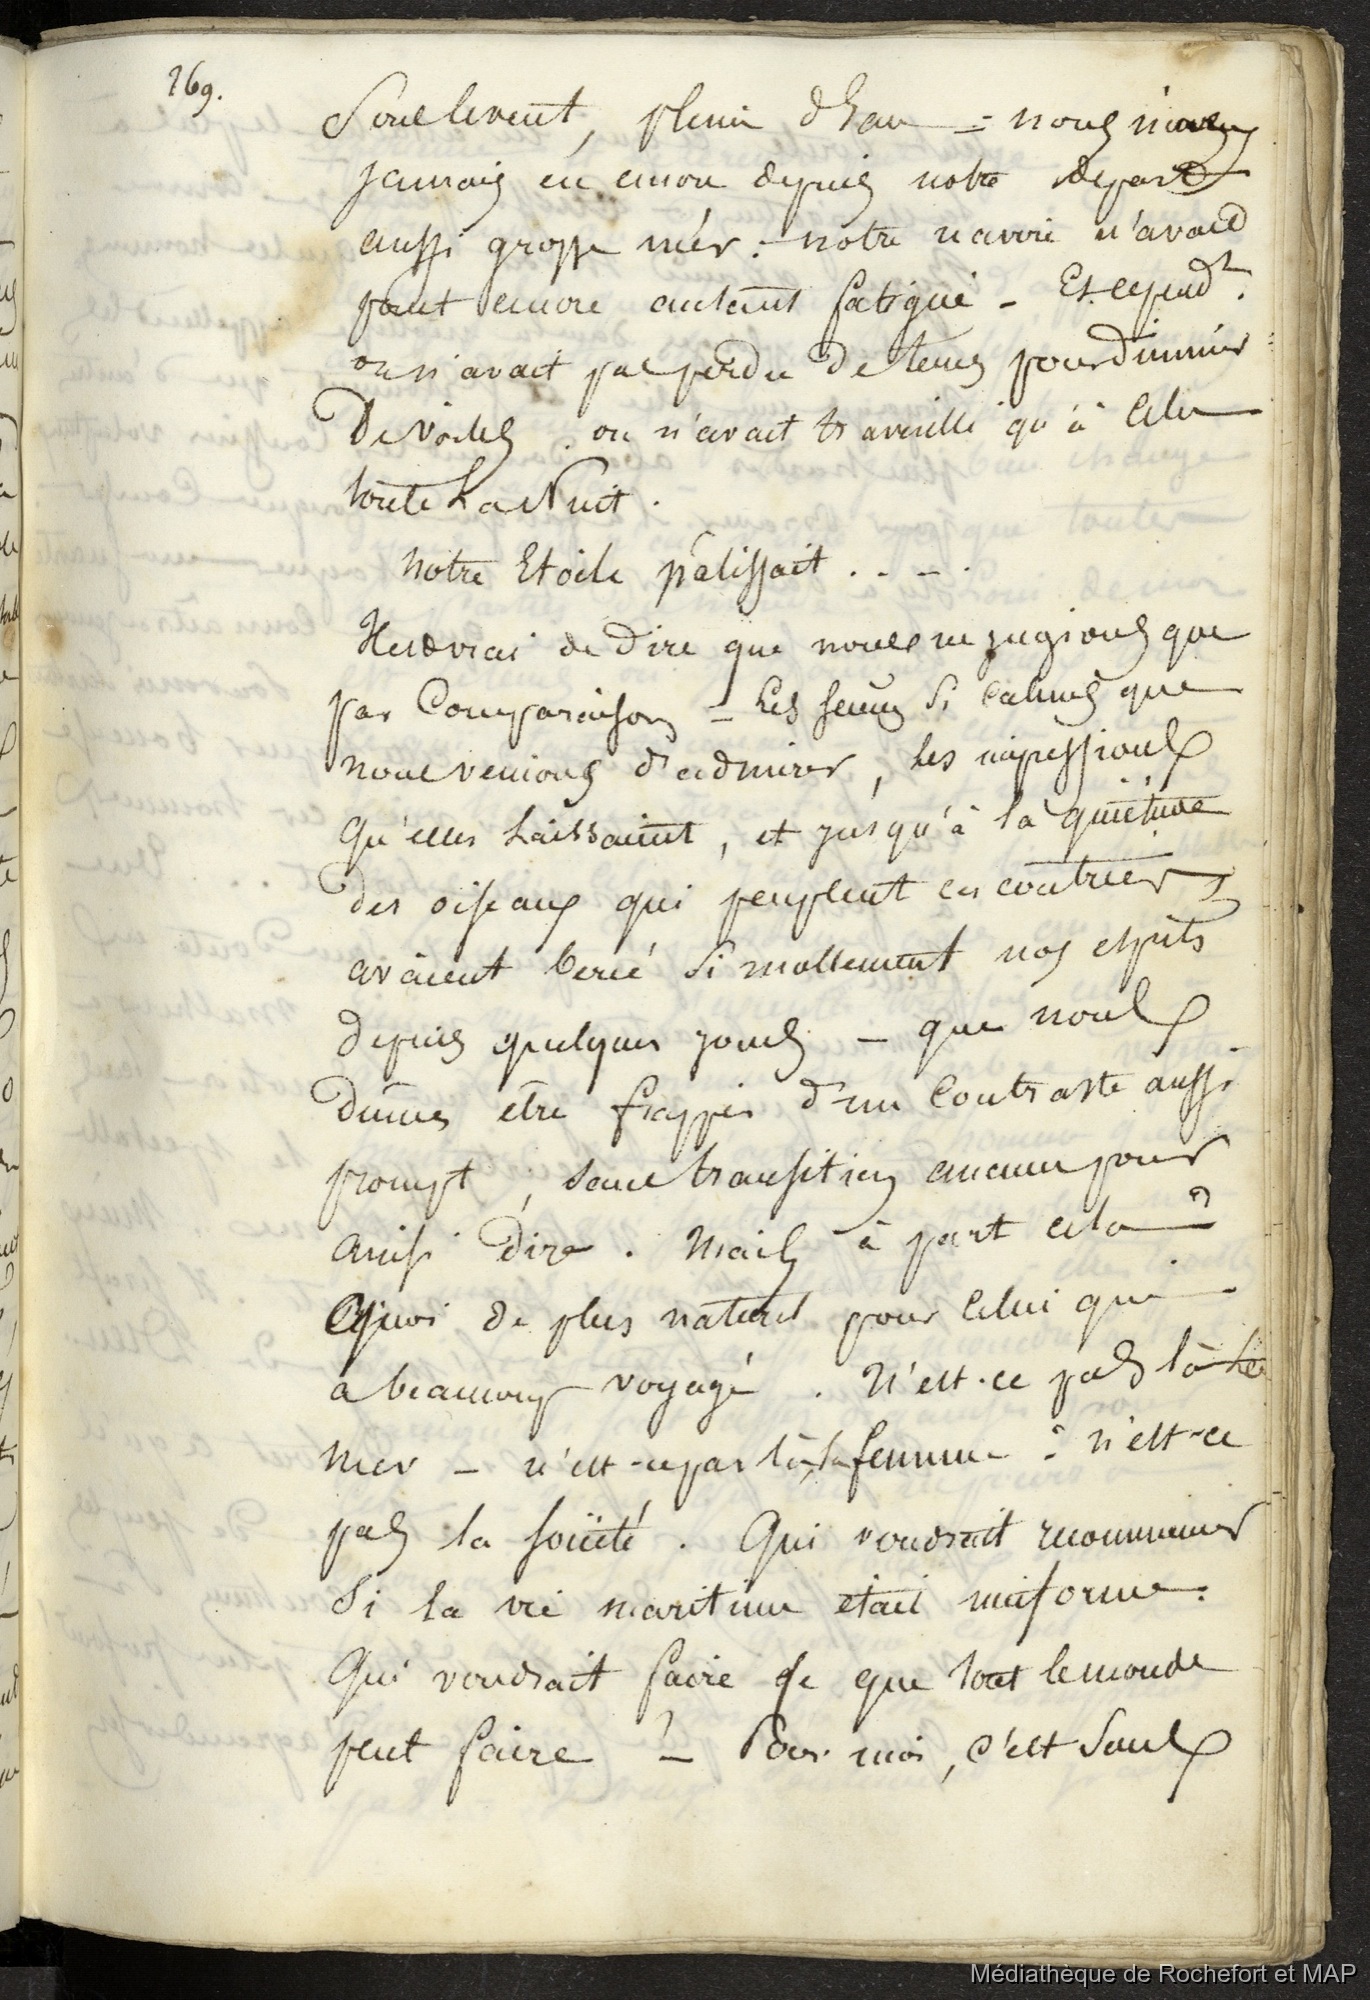 269.
Sous le vent, plein d'eau = nous n'avons
jamais eu encore depuis notre départ
aussi grosse mèr : notre navire n'avait
point encore autant fatigué - Et cepend.t
on n'avait pas perdu de tems pour diminuer
De voiles . on n'avait travaillé qu'à cela
toute La Nuit .
Notre Etoile pâlissait . . - .
Il est vrai de dire que nous ne jugions que
par Comparaison - Les scènes si calmes que
nous venions d'admirer, les impressions
qu'elles laissaient, et jusqu'à la quiétude
des oiseaux qui peuplent ces contrées,
avaient bercé si mollement nos esprits
depuis quelques jours - que nous
dûmes etre frappés d'un Contraste aussi
prompt, sans transition aucune pour
ainsi dire . Mais à part cela
Quoi de plus naturel pour celui qui
a beaucoup voyagé . N'est-ce pas là la
mer - n'est-ce pas là, la femme : n'est-ce
pas la société . Qui voudrait recommencer
Si la vie maritime était uniforme .
Qui voudrait faire ce que tout le monde
peut faire ! - Pour moi, c'est sous
Médiathèque de Rochefort et MAP